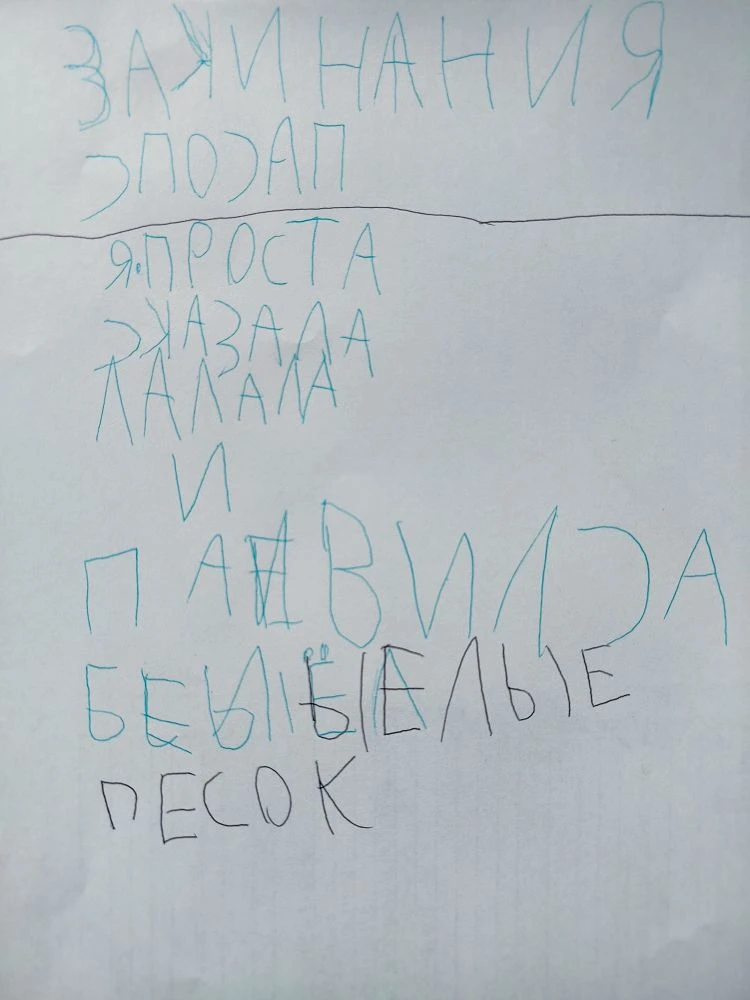 ЗАКИНАНИЯ
ЭПОЭАП
Я.ПРОСТА
СКАЗАЛА
ЛАЛАЛА
И
ПАЯВИЛСА
БЕЛЫЕ
ПЕСОК